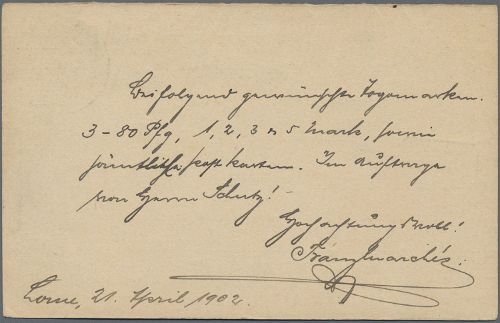 Beifolgend gewünschte Togomarken.
3-80 Pfg, 1, 2, 3 & 5 Mark, sowie
sämtliche Postkarten. Im Auftrage
von Herrn Schutz!
Hochachtungsvoll!
Lome, 21. April 1902.